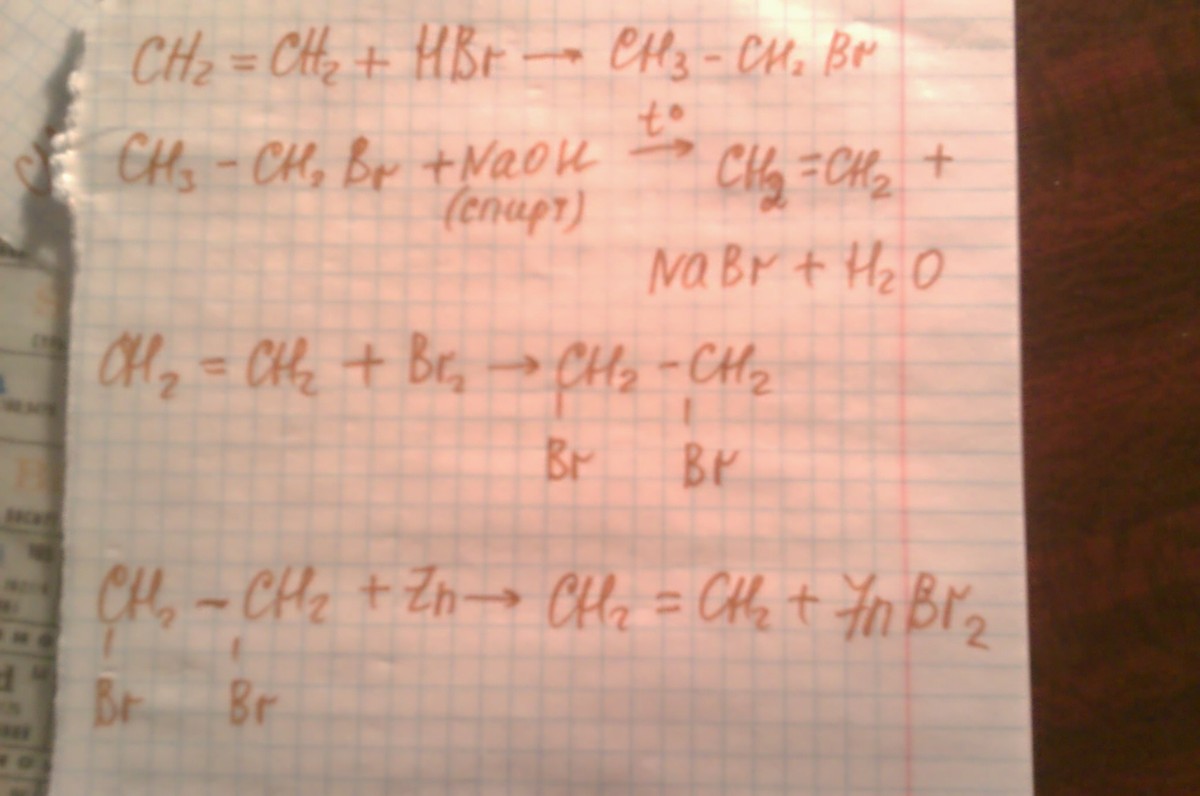 CH₂ = CH₂ + HBr → CH₃ - CH₂ Br
t°
CH₃ - CH₂ Br + NaOH → CH₂ = CH₂ +
(спирт)
NaBr + H₂O
CH₂ = CH₂ + Br₂ → CH₂ - CH₂
Br Br
CH₂ - CH₂ + Zn → CH₂ = CH₂ + ZnBr₂
Br Br